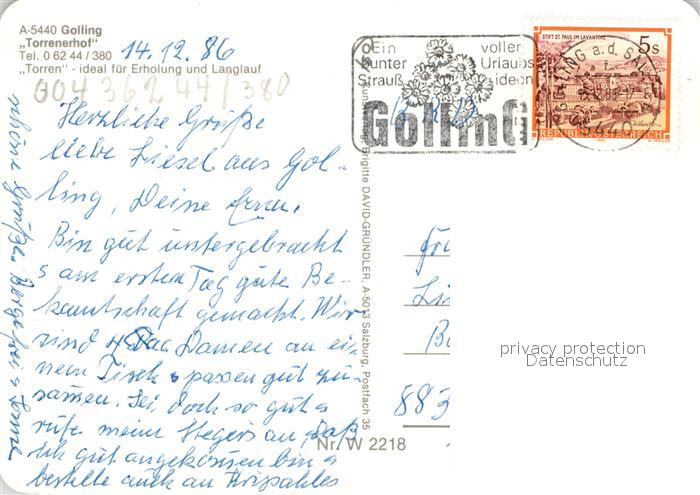 A-5440 Golling
„Torrenerhof"
Tel. 0 62 44 / 380
„Torren" - ideal für Erholung und Langlauf
14.12.86
0043 62 44/380
Herzliche Grüße
liebe Liesel aus Gol-
ling, Deine
Bin gut untergebracht
s am ersten Tag gute Be-
kanntschaft gemacht. Wir
sind 4 Damen an ei-
nem Tisch s passen gut zu-
samen. Sei doch so gut s
rufe meine an, daß
ich gut angekommen bin s
bestelle auch an
schöne Grüße. Berge frei s Sonne
Ein voller
bunter Urlaubs
Strauß ideen
Golling
STIFT ST. PAUL IM LAVANTTAL
5s
REPUBLIK ÖSTERREICH
GOLLING a. d. SALZ
Brigitte DAVID-GRÜNDLER, A-5013 Salzburg, Postfach 35
Nr. W 2218
Fra
Li
B
883
privacy protection
Datenschutz